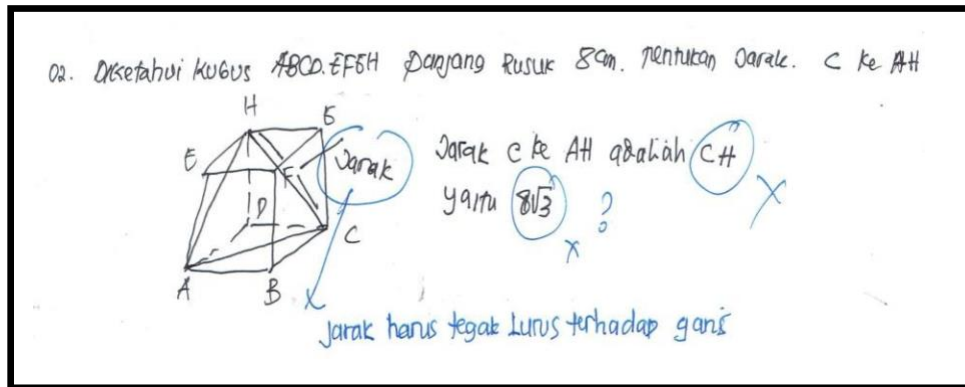 02. Diketahui Kubus ABCD.EFGH Panjang Rusuk 8cm. Tentukan Jarak. C ke AH
H
G
E
F
Jarak
D
C
A
B
Jarak C ke AH adaliah CH X
yaitu 8√3 ?
X
X
Jarak harus tegak Lurus terhadap garis